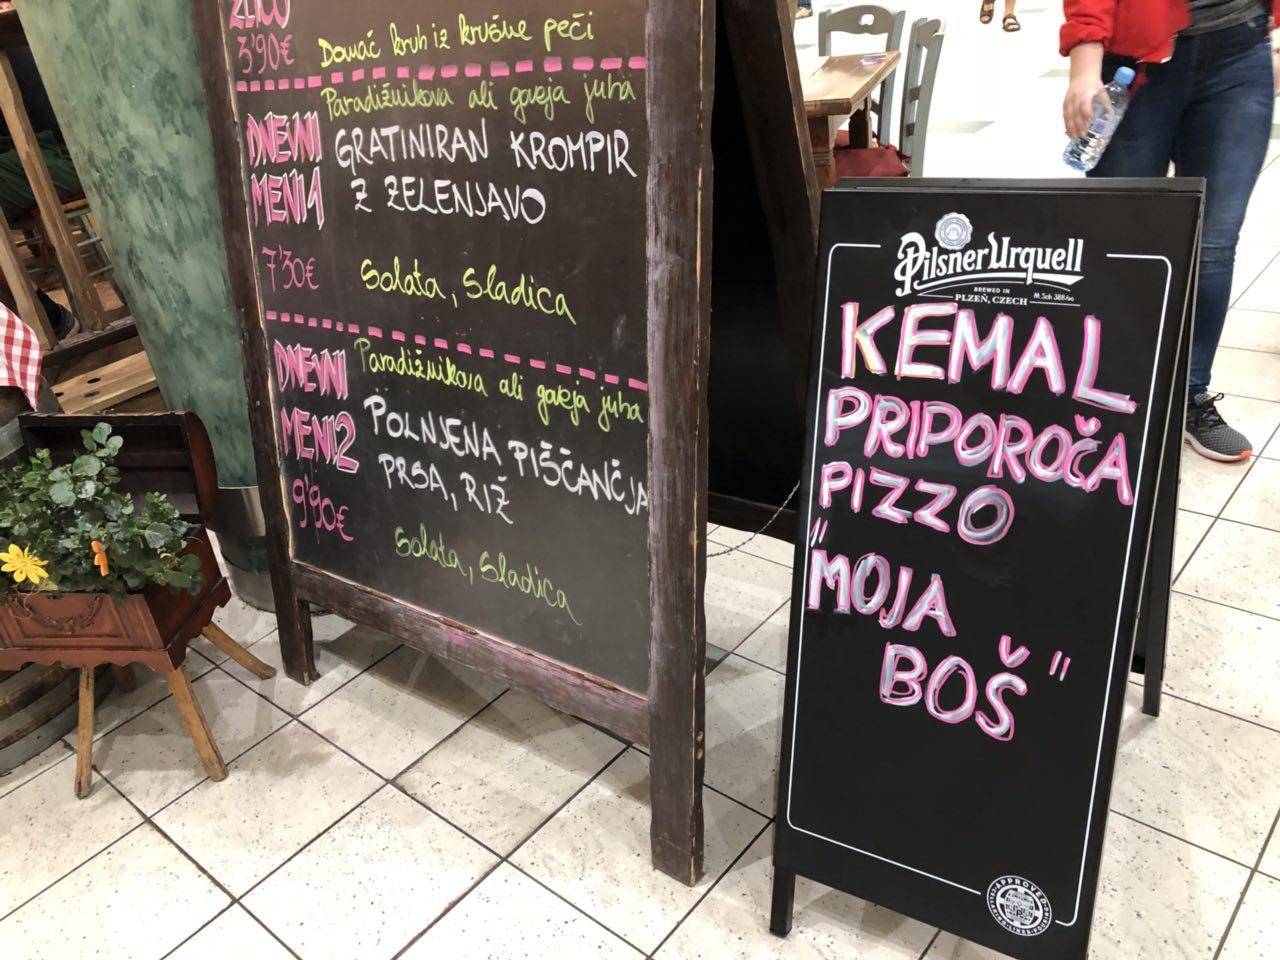 3'90€
Domač kruh iz krušne peči
DNEVNI
MENI 1
7'30€
Paradižnikova ali goveja juha
GRATINIRAN KROMPIR
Z ZELENJAVO
Solata, Sladica
DNEVNI
MENI 2
9'90€
Paradižnikova ali goveja juha
POLNJENA PIŠČANČJA
PRSA, RIŽ
Solata, Sladica
Pilsner Urquell
BREWED IN
PLZEŇ, CZECH
KEMAL
PRIPOROČA
PIZZO
"MOJA
BOŠ"
APPROVED